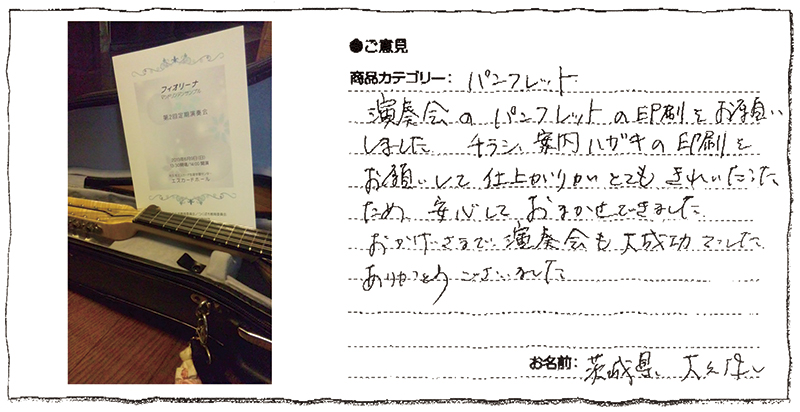 フィオリーナ
マンドリンアンサンブル
第2回定期演奏会
エスカードホール
●ご意見
商品カテゴリー: パンフレット
演奏会のパンフレットの印刷をお願い
しました チラシ、案内ハガキの印刷を
お願いして仕上がりがとてもきれいだった
ため、安心しておまかせできました
おかげさまで演奏会も大成功でした
ありがとうございました
お名前: 茨城県